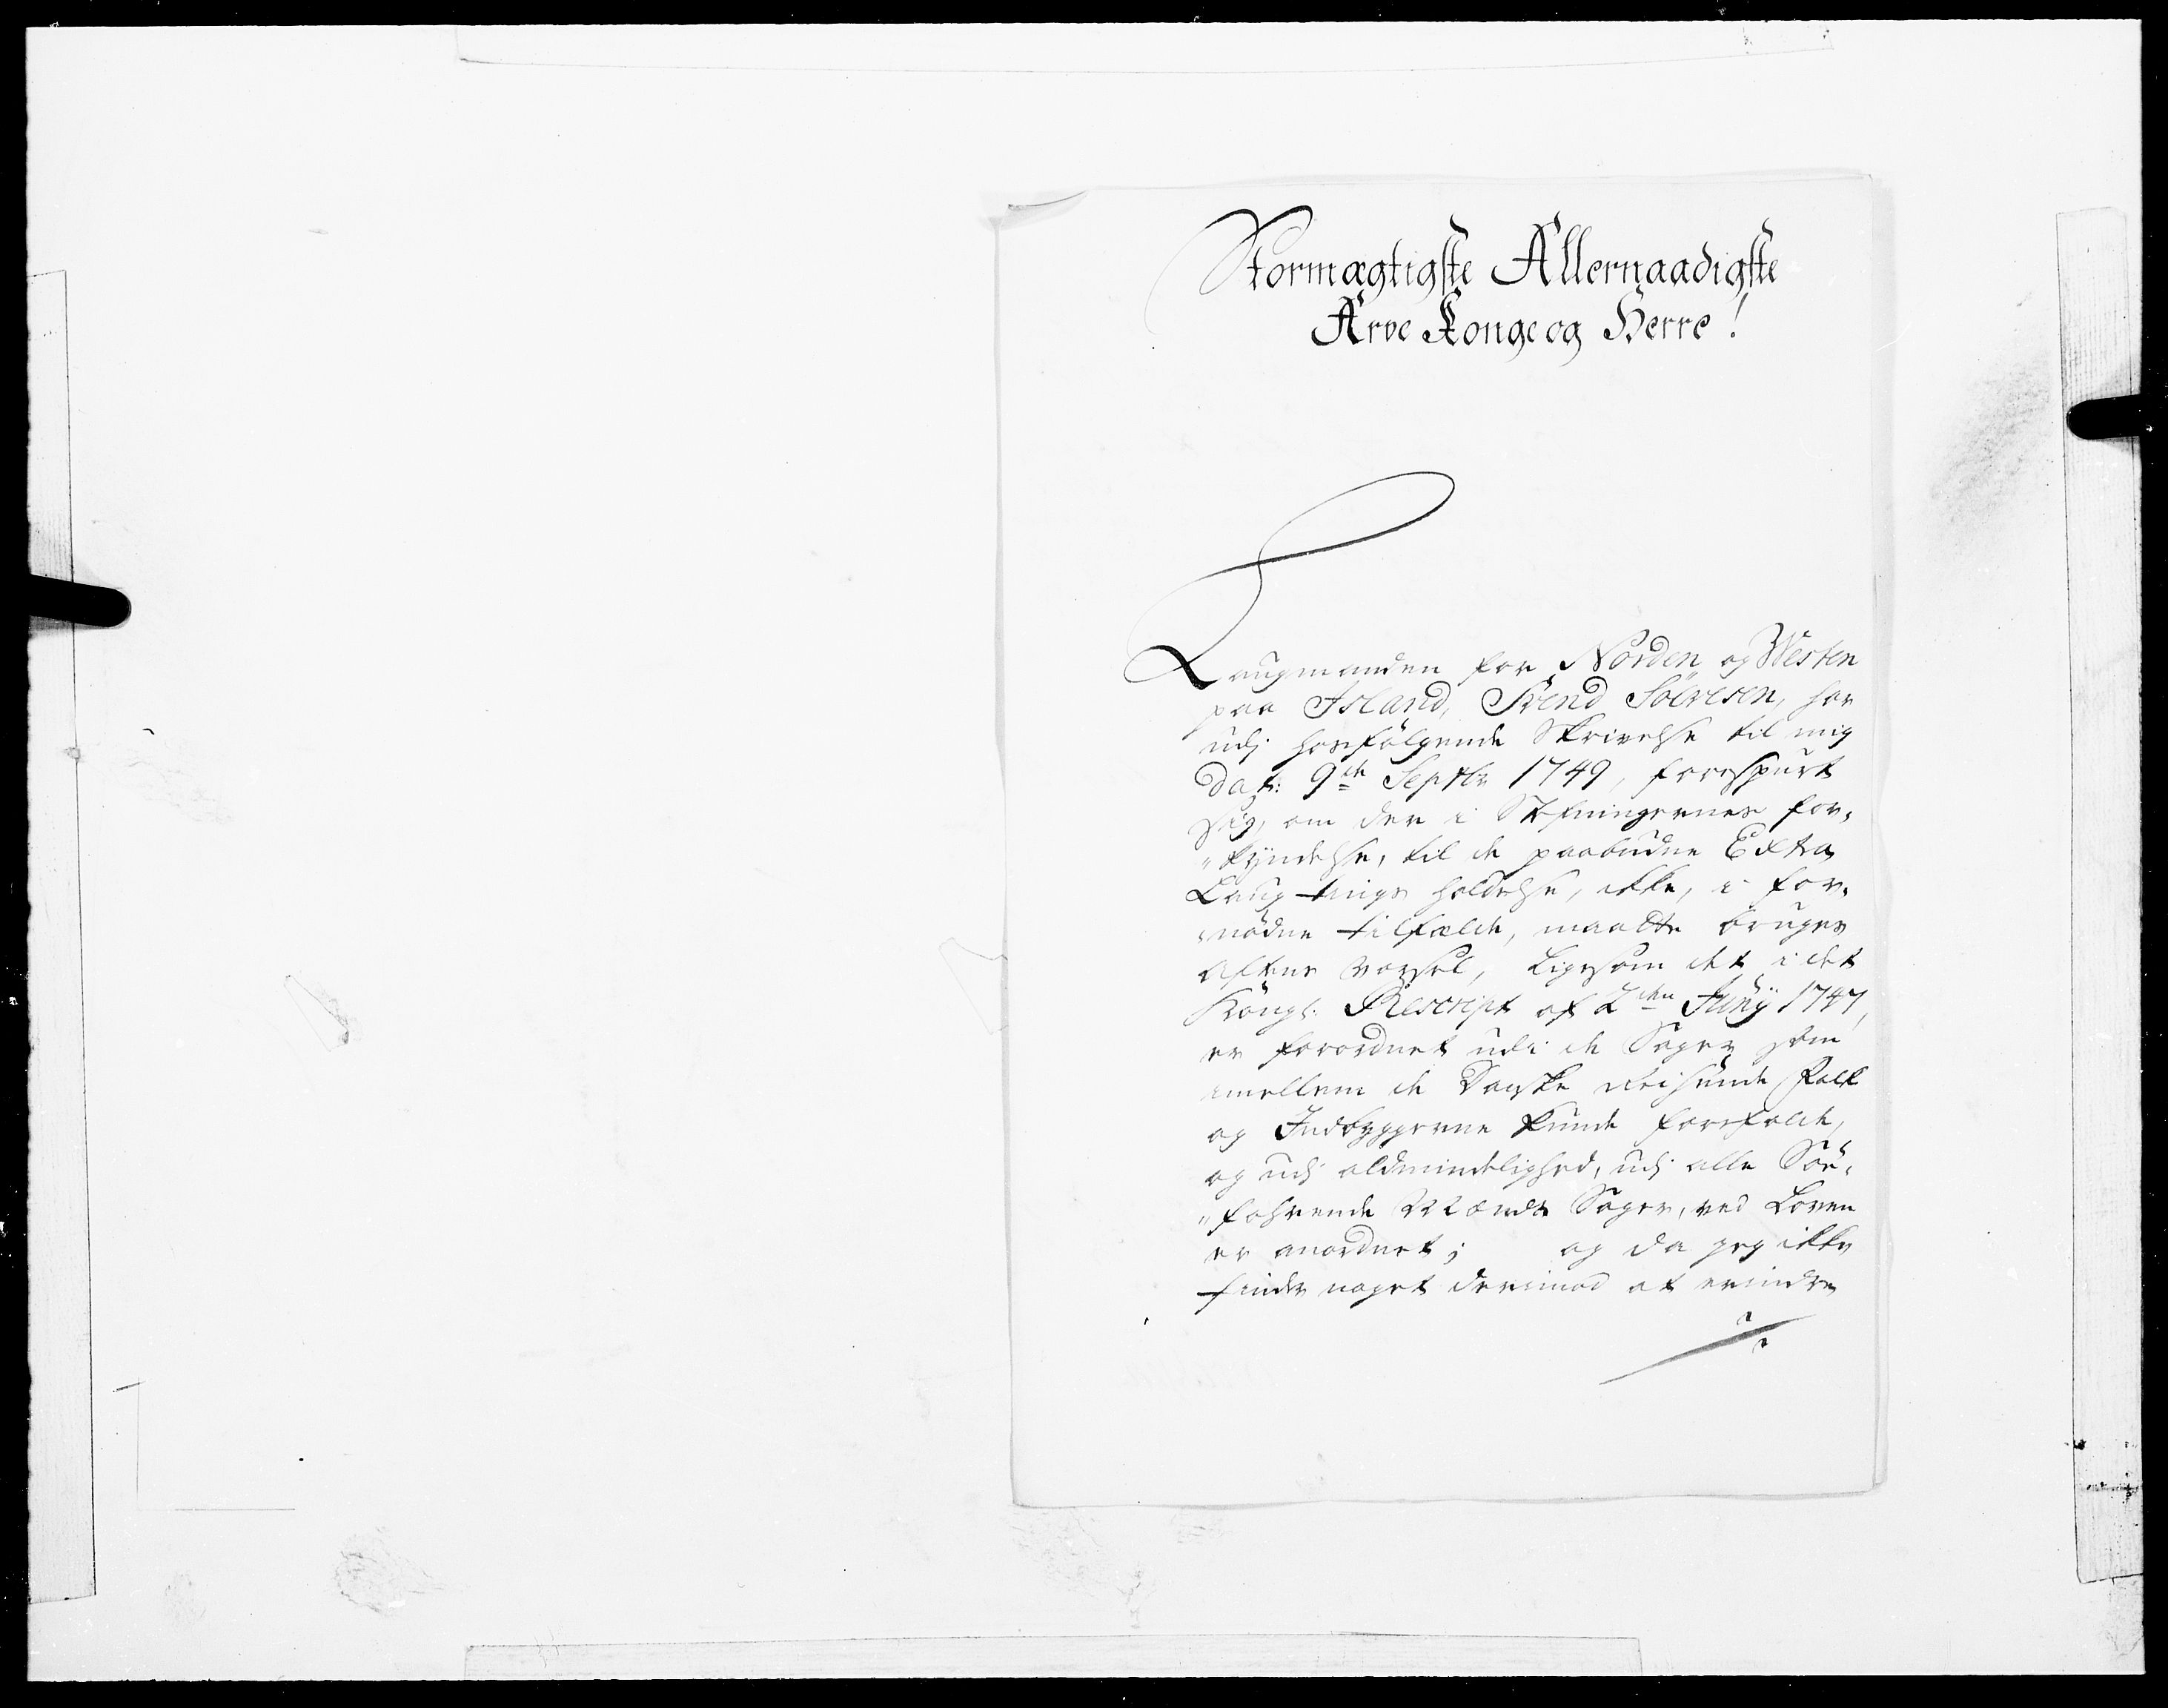 Stormægtigste Allernaadigste
Arve Konge og Herre!
Laugmanden for Norden og Westen
paa Island, Svend Sölvesen, har
udj hosfölgende Skrivelse til mig
dat: 9de Septbr 1749, forespurt
sig, om der i Stefningernes for-
"kyndelse, til de paabudne Extra
Laug tings holdelse, ikke, i for-
nødne tilfælde, maatte bruges
aftens varsel, ligesom det i det
Kongl. Rescript af 2den Junij 1747,
er forordnet udi de Sager som
imellem de Danske Reisende Folk
og Indbyggerne kunde forefalde,
og udj aldmindelighed, udj alle Söe-
"fahrende Mænds Sager, ved Loven
er anordnet; og da jeg ikke
finder noget derimod at erindre